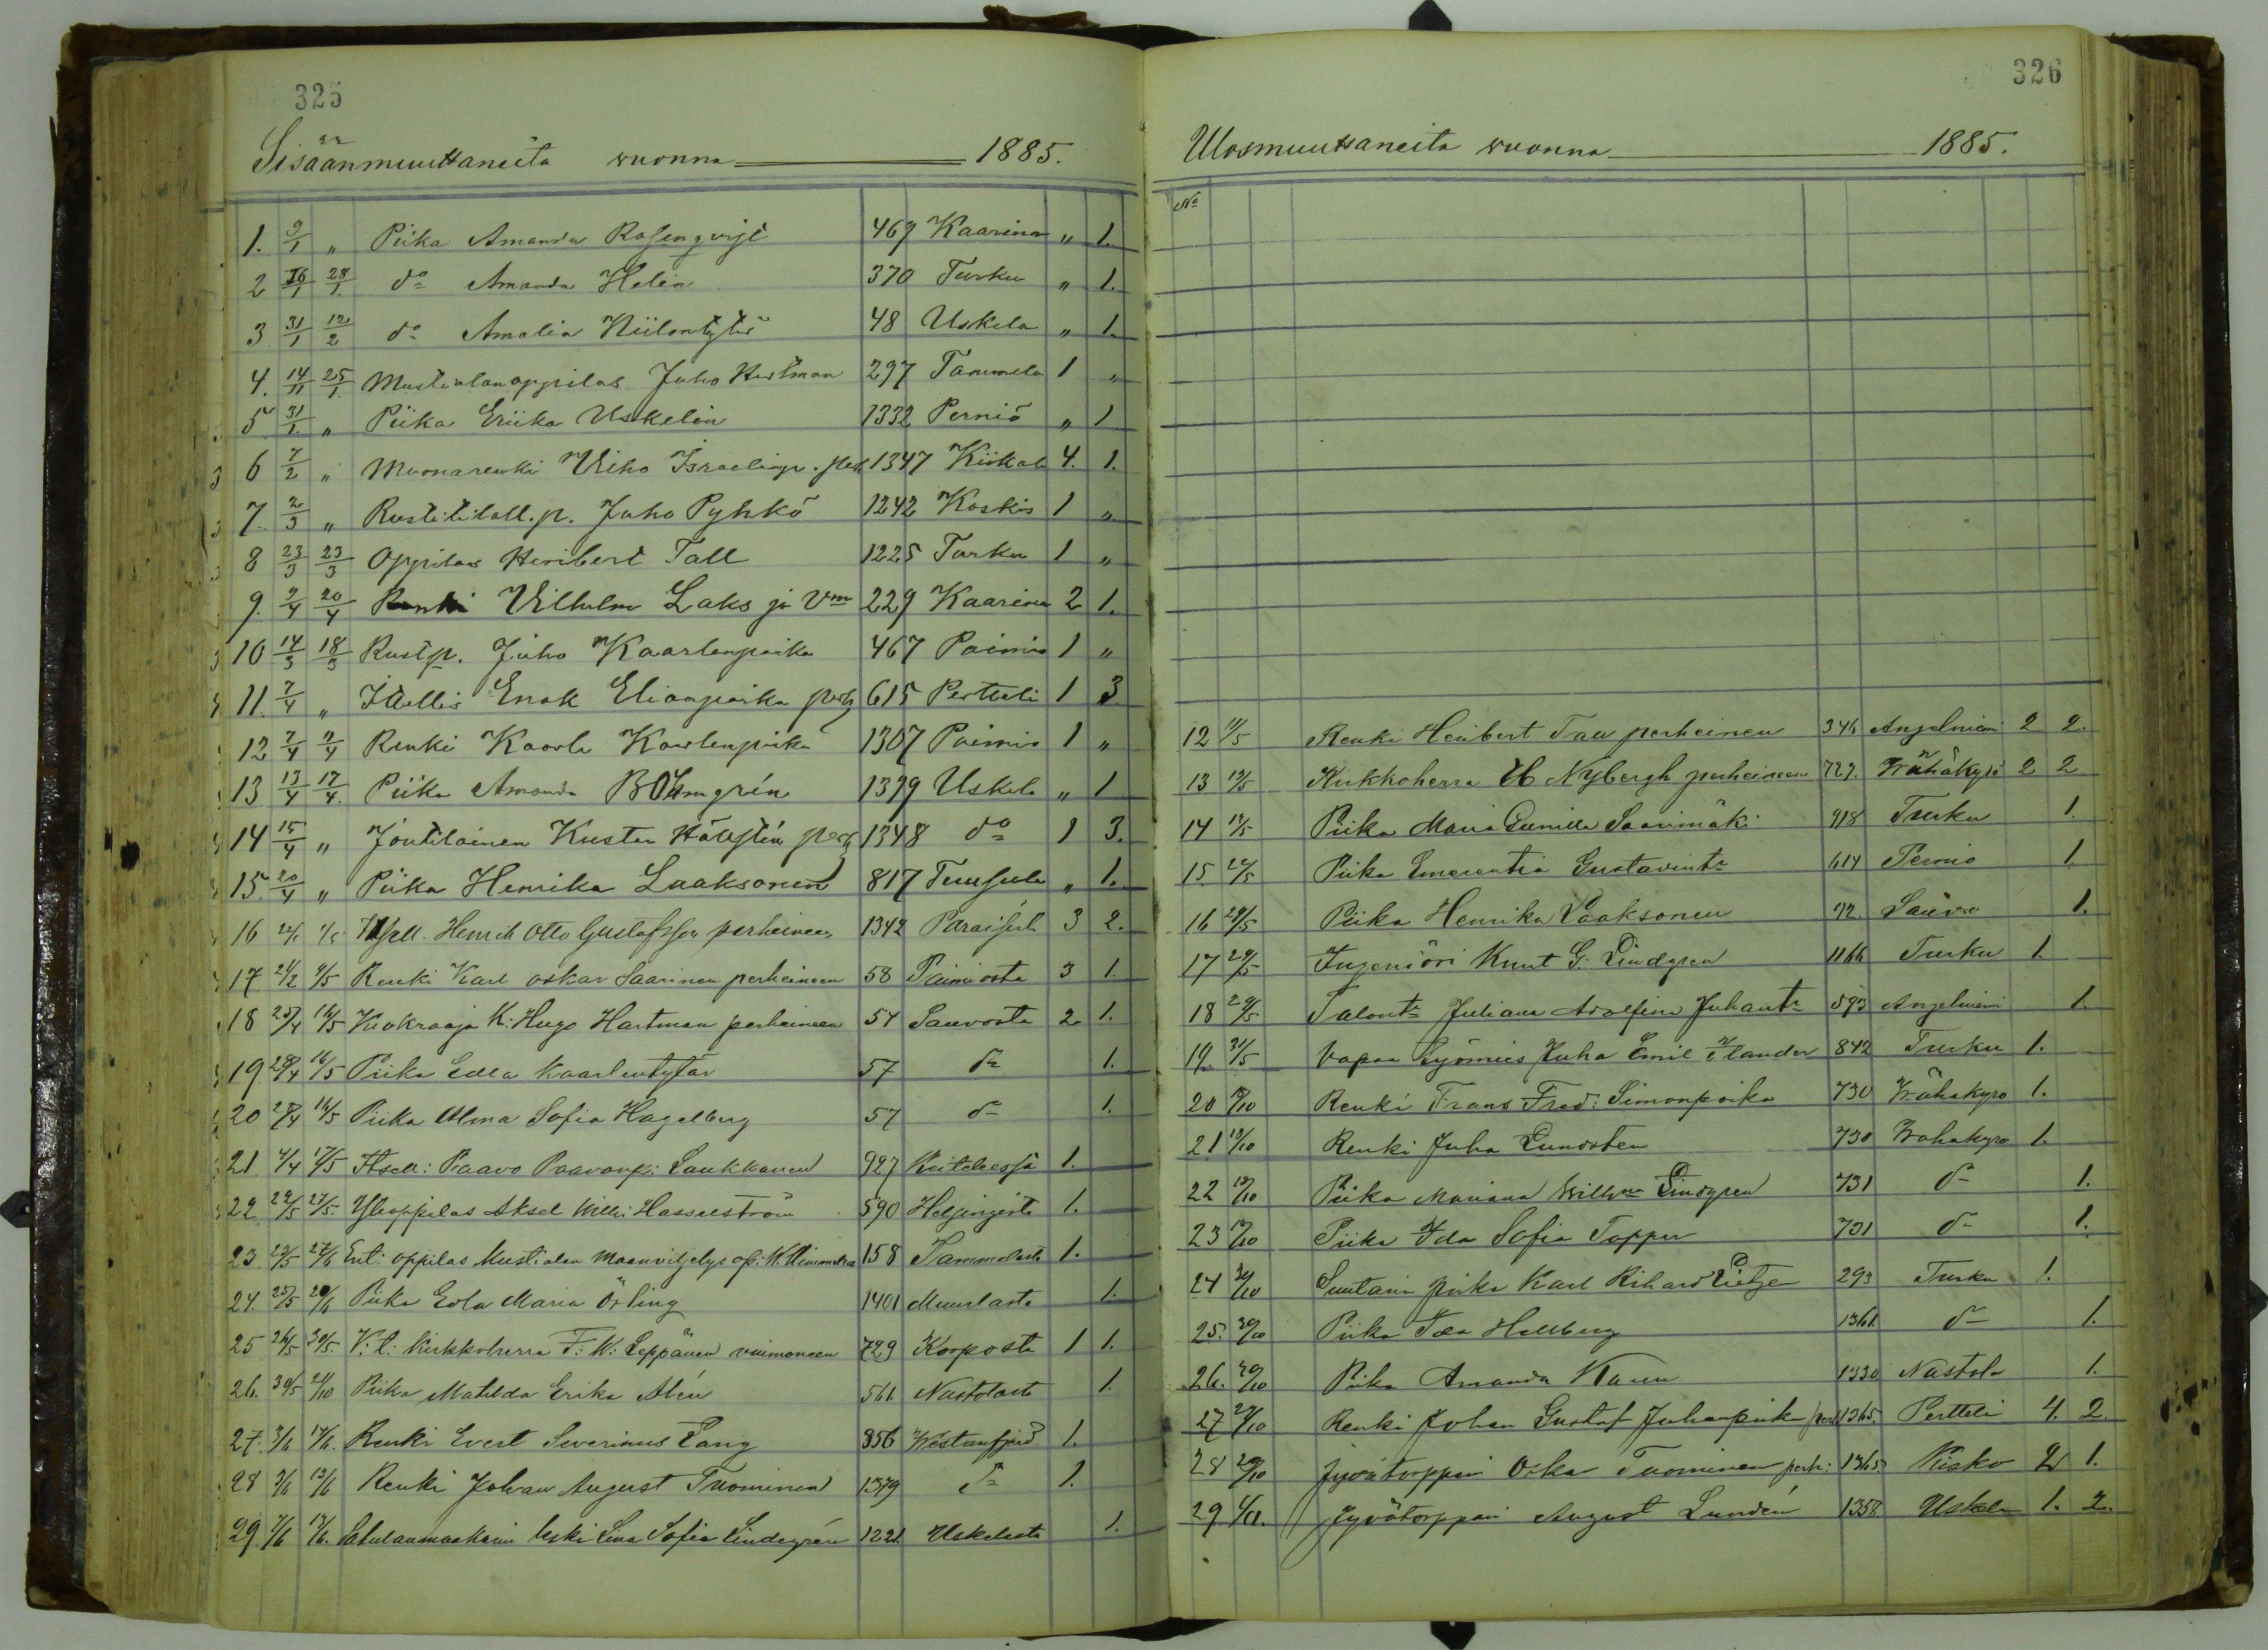 325
Sisäänmuuttaneita vuonna 1885.
1. 9/1 " Piika Amanda Rosenqvist 469 Kaarina " 1.
2 16/1 28/1. do Amanda Helin 370 Turku " 1.
3 31/1 12/2 do Amalia Niilontytär 48 Uskela " 1.
4. 14/11 25/1. Mustialanoppilas Juho 297 Tammela 1 "
5 31/1. " Piika Eriika Uskelin 1332 Perniö " 1
6 7/2 " Muonarenki Viho Israelinp. perh 1347 Kiikala 4. 1.
7. 2/3 " Rustitilall.p. Juho Pyhkö 1242 Koskis 1 "
8 23/3 23/3 Oppilas Heribert Tall 1225 Turku 1 "
9. 9/4 20/4 Renki Vilhelm Laks ja Vmo 229 Kaarina 2 1.
10 14/3 18/3 Rustp. Juho Kaarlenpoika 467 Paimio 1 "
11. 7/4 " Itsellis Enok Elianpoika perh 615 Pertteli 1 3
12 7/4 9/4 Renki Kaarle Kaarlenpoika 1307 Paimio 1 "
13 13/4 17/4. Piika Amanda Blomgrén 1379 Uskela " 1
14 15/4 " Joutilainen Kustaa perh 1348 do 1 3.
15. 20/4 " Piika Henrika Laaksonen 817 Tuusula " 1.
16 Itsell. Henrik Otto Gustafsson perheineen 1342 3 2.
17 21/2 9/5 Renki Karl Oskar Saarinen perheineen 58 Paimiosta 3 1.
18 25/4 16/5 Vuokraaja K. Hugo Hartman perheineen 57 Sauvosta 2 1.
19 28/4 16/5 Piika Edla Kaarlentytär 57 do 1.
20 28/4 16/5 Piika Alma Sofia Hagelberg 57 do 1.
21 4/4 17/5 Itsell: Paavo Paavonp: Laukkanen 927 1.
22 22/5 27/5. Ylioppilas Aksel Wilh: Hasselström 590 Helsingistä 1.
23 23/5 27/6 Ent: oppilas Mustialan Maanviljelys op: 158 Tammelasta 1.
24. 25/5 20/6 Piika Edla Maria Örling 1401 Muurlasta 1.
25 26/5 30/5. V: t: Kirkkoherra F: W: Leppänen vaimoneen 729 Korposta 1 1.
26. 30/5 21/10 Piika Matilda Erika Alén 561 Nastolasta 1.
27. 3/6 17/6. Renki Evert Severinus Lang 356 Westanfjerd 1.
28 3/6 13/6 Renki Johan August Tuominen 1379 do 1.
29. 7/6 17/6. Satulanmaakarin leski Lina Sofia Lindegrén 1221. Uskelasta 1.
326
Ulosmuuttaneita vuonna 1885.
No
12 11/5 Renki Heribert Tau perheineen 346 Angelniemi 2 2.
13 13/5 Kirkkoherra H Nybergh perheineen 729. Vähäkyrö 2 2
14 19/5 Piika Maria Gunilla Saarimäki 918 Turku 1.
15. 22/5 Piika Emerentia Gustavint: 614 Perniö 1
16 29/5 Piika Henrika Laaksonen 92. Sauvo 1.
17 29/5 Ingeniööri Knut G. Lindgren 1166 Turku 1.
18 29/5 Talont: Juliana Adolfina Juhant: 593 Angelniemi 1.
19. 31/5 Vapaa työmies Juha Emil Elander 842 Turku 1.
20 9/10 Renki Frans Fred: Simonpoika 730 Vähäkyrö 1.
21 13/10 Renki Juha Lundsten 730 Vähäkyrö 1.
22 13/10 Piika Mariana Willh:na Lindgren 731 do 1.
23 13/10 Piika Ida Sofia Topper 731 do 1.
24 30/10 Suutarin poika Karl Rikard 293 Turku 1.
25. 30/10 Piika Ida Hellberg 1361. do 1.
26. 30/10 Piika Amanda 1330 Nastola 1.
27 29/10 Renki Johan Gustaf Juhanpoika perh 1365. Pertteli 4. 2.
28 29/10 Jyvätorppari Oska Tuominen perh: 1365. Kisko 2 1.
29 4/11. Jyvätorppari August Lundén 1358. Uskela 1. 2.